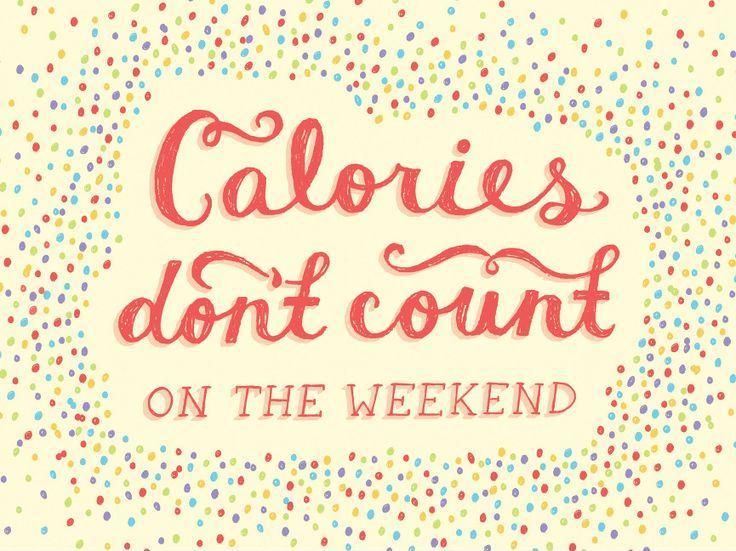 Calories
don't count
ON THE WEEKEND